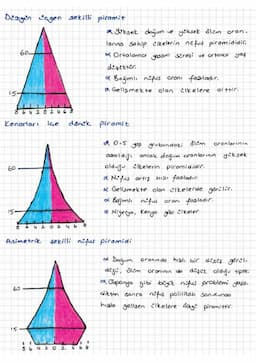 Düzgün üçgen şekilli piramit
Yüksek doğum ve yüksek ölüm oran-
larına sahip ülkelerin nüfus piramididir.
Ortalama yaşam süresi ve ortanca yaş
düşüktür.
Bağımlı nüfus oranı fazladır.
Gelişmekte olan ülkelere aittir.
60
15
8 6 4 2 0 2 4 6 8
Kenarları içe dönük piramit
0-5 yaş grubundaki ölüm oranlarının
azaldığı ancak doğum oranlarının yüksek
olduğu ülkelerin piramididir.
Nüfus artış hızı fazladır.
Gelişmekte olan ülkelerde görülür.
Bağımlı nüfus oranı fazladır.
Nijerya, Kenya gibi ülkeler
60
15
8 6 4 2 0 2 4 6 8
Asimetrik şekilli nüfus piramidi
Doğum oranında hızlı bir düşüş görül-
düğü, ölüm oranının da düşük olduğu tiptir.
Japonya gibi büyük nüfus problemi yaşa-
dıktan sonra nüfus politikası sonucunda
hale gelişen ülkelere özgü piramittir.
60
15
8 6 4 2 0 2 4 6 8